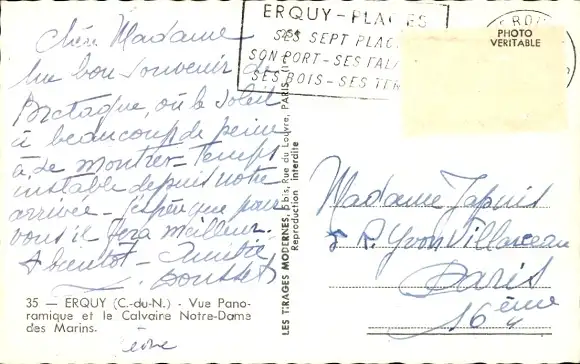 Chère Madame
Un bon souvenir de
Bretagne, où le soleil
à beaucoup de peine
à se montrer - Temps
instable depuis notre
arrivée - J'espère que pour
vous il fera meilleur.
A bientôt - Amitiés
35 — ERQUY (C.-du-N.) - Vue Pano-
ramique et le Calvaire Notre-Dame
des Marins.
LES TIRAGES MODERNES, 8 bis, Rue du Louvre, PARIS
Reproduction interdite
ERQUY-PLAGES
SES SEPT PLAG
SON PORT - SES FALA
SES BOIS - SES TER
PHOTO
VERITABLE
Madame
R. Yvon Villarceau
Paris
16ème